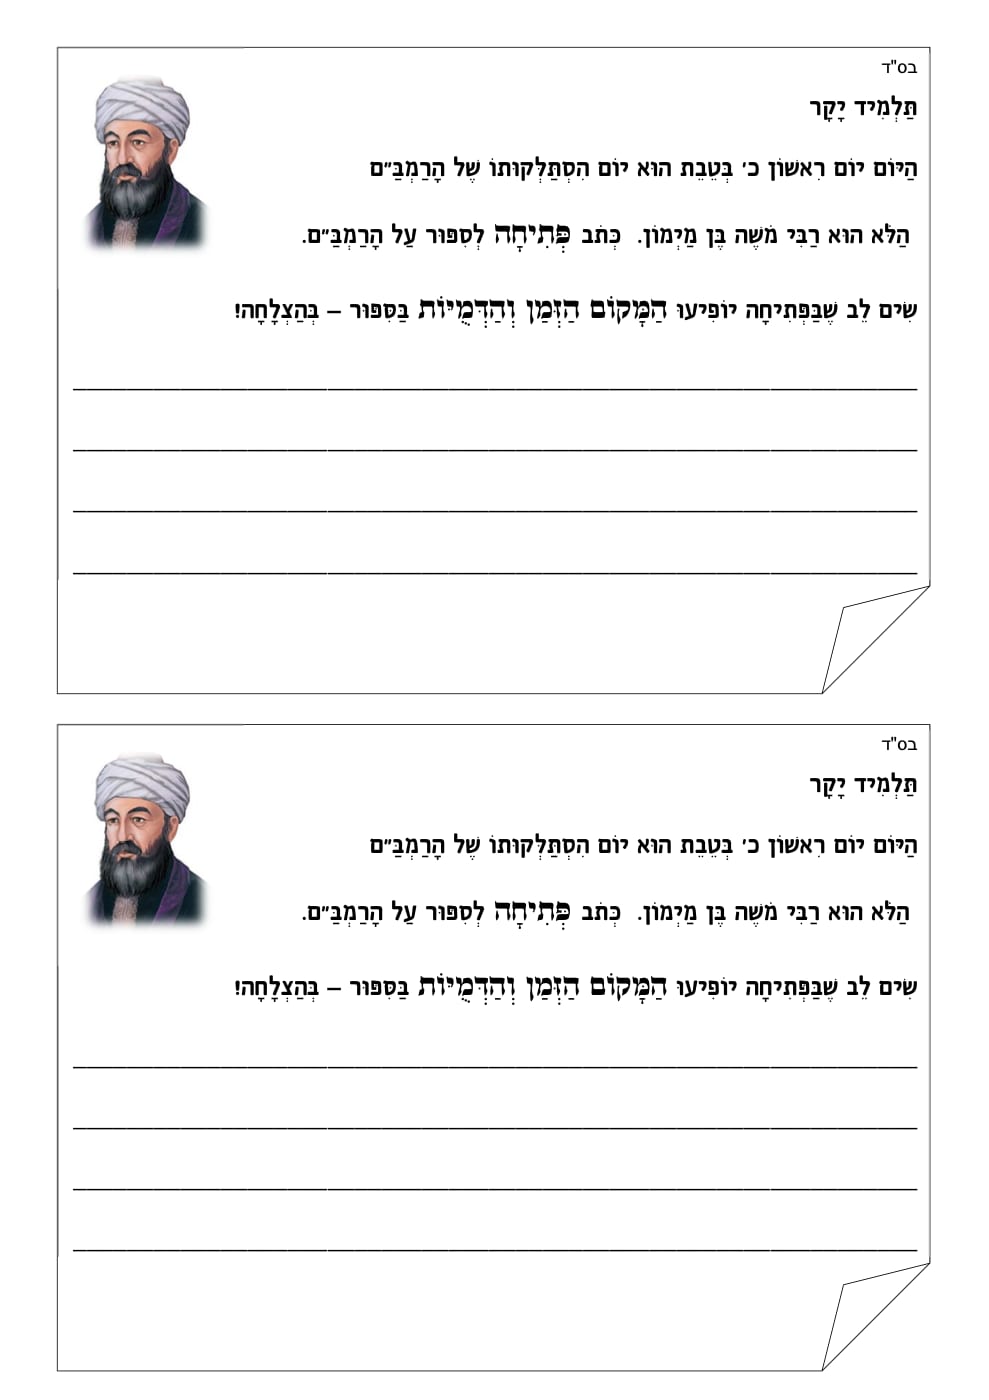 בס"ד
תַּלְמִיד יָקָר
הַיּוֹם יוֹם רִאשׁוֹן כ׳ בְּטֵבֵת הוּא יוֹם הִסְתַּלְּקוּתוֹ שֶׁל הָרַמְבַּ״ם
הַלֹּא הוּא רַבִּי מֹשֶׁה בֶּן מַיְמוֹן. כְּתֹב פְּתִיחָה לְסִפּוּר עַל הָרַמְבַּ״ם.
שִׂים לֵב שֶׁבַּפְּתִיחָה יוֹפִיעוּ הַמָּקוֹם הַזְּמַן וְהַדְּמֻיּוֹת בַּסִּפּוּר – בְּהַצְלָחָה!
בס"ד
תַּלְמִיד יָקָר
הַיּוֹם יוֹם רִאשׁוֹן כ׳ בְּטֵבֵת הוּא יוֹם הִסְתַּלְּקוּתוֹ שֶׁל הָרַמְבַּ״ם
הַלֹּא הוּא רַבִּי מֹשֶׁה בֶּן מַיְמוֹן. כְּתֹב פְּתִיחָה לְסִפּוּר עַל הָרַמְבַּ״ם.
שִׂים לֵב שֶׁבַּפְּתִיחָה יוֹפִיעוּ הַמָּקוֹם הַזְּמַן וְהַדְּמֻיּוֹת בַּסִּפּוּר – בְּהַצְלָחָה!